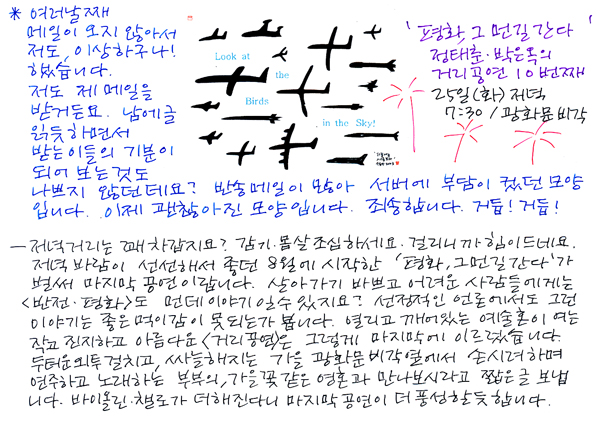 * 여러날째
메일이 오지 않아서
저도, 이상하구나!
했습니다.
저도 제 메일을
받거든요. 남에 글
읽듯 하면서
받는이들의 기분이
되어 보는 것도
나쁘지 않던데요? 방송메일이 많아 서버에 부담이 컸던 모양
입니다. 이제 괜찮아진 모양입니다. 죄송합니다. 거듭! 거듭!
Look at
the
Birds
in the Sky!
'평화, 그 먼길 간다'
정태춘·박은옥의
거리공연 10번째
25일(화) 저녁
7:30 / 광화문 비각
— 저녁거리는 꽤 차갑지요? 감기·몸살 조심하세요. 걸리니까 힘이 드네요.
저녁 바람이 선선해서 좋던 8월에 시작한 '평화, 그 먼길 간다'가
벌써 마지막 공연이랍니다. 살아가기 바쁘고 어려운 사람들에게는
<반전·평화>도 먼데 이야기일 수 있지요? 선정적인 언론에서도 그런
이야기는 좋은 먹이감이 못되는가 봅니다. 열리고 깨어있는 예술혼이 여는
작고 진지하고 아름다운 <거리공연>은 그렇게 마지막에 이르렀습니다.
두터운 외투 걸치고, 싸늘해지는 가을 광화문 비각 옆에서 손시려하며
연주하고 노래하는 부부의, 가을꽃 같은 영혼과 만나보시라고 짧은 글 보냅
니다. 바이올린·첼로가 더해진다니 마지막 공연이 더 풍성할 듯 합니다.